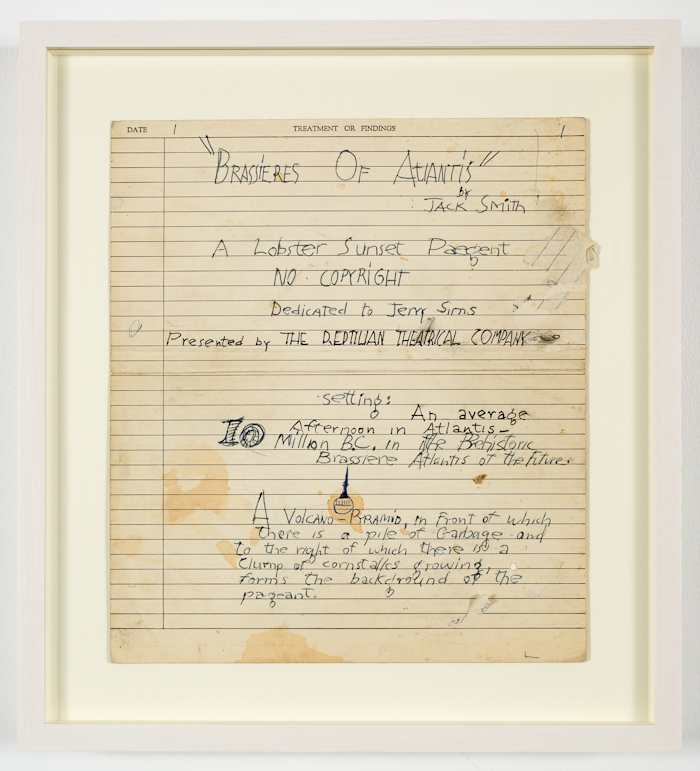 DATE 1 TREATMENT OR FINDINGS 1
"BRASSIERES OF ATLANTIS"
by
JACK SMITH
A Lobster Sunset Pagent
NO COPYRIGHT
Dedicated to Jerry Sims
Presented by THE REPTILIAN THEATRICAL COMPANY
setting:
An average
Afternoon in Atlantis-
10 Million B.C. in the Prehistoric
Brassiere Atlantis of the future.
A VOLCANO-PYRAMID, in front of which
there is a pile of Garbage and
to the right of which there is a
clump of cornstalks growing,
forms the background of the
pageant.